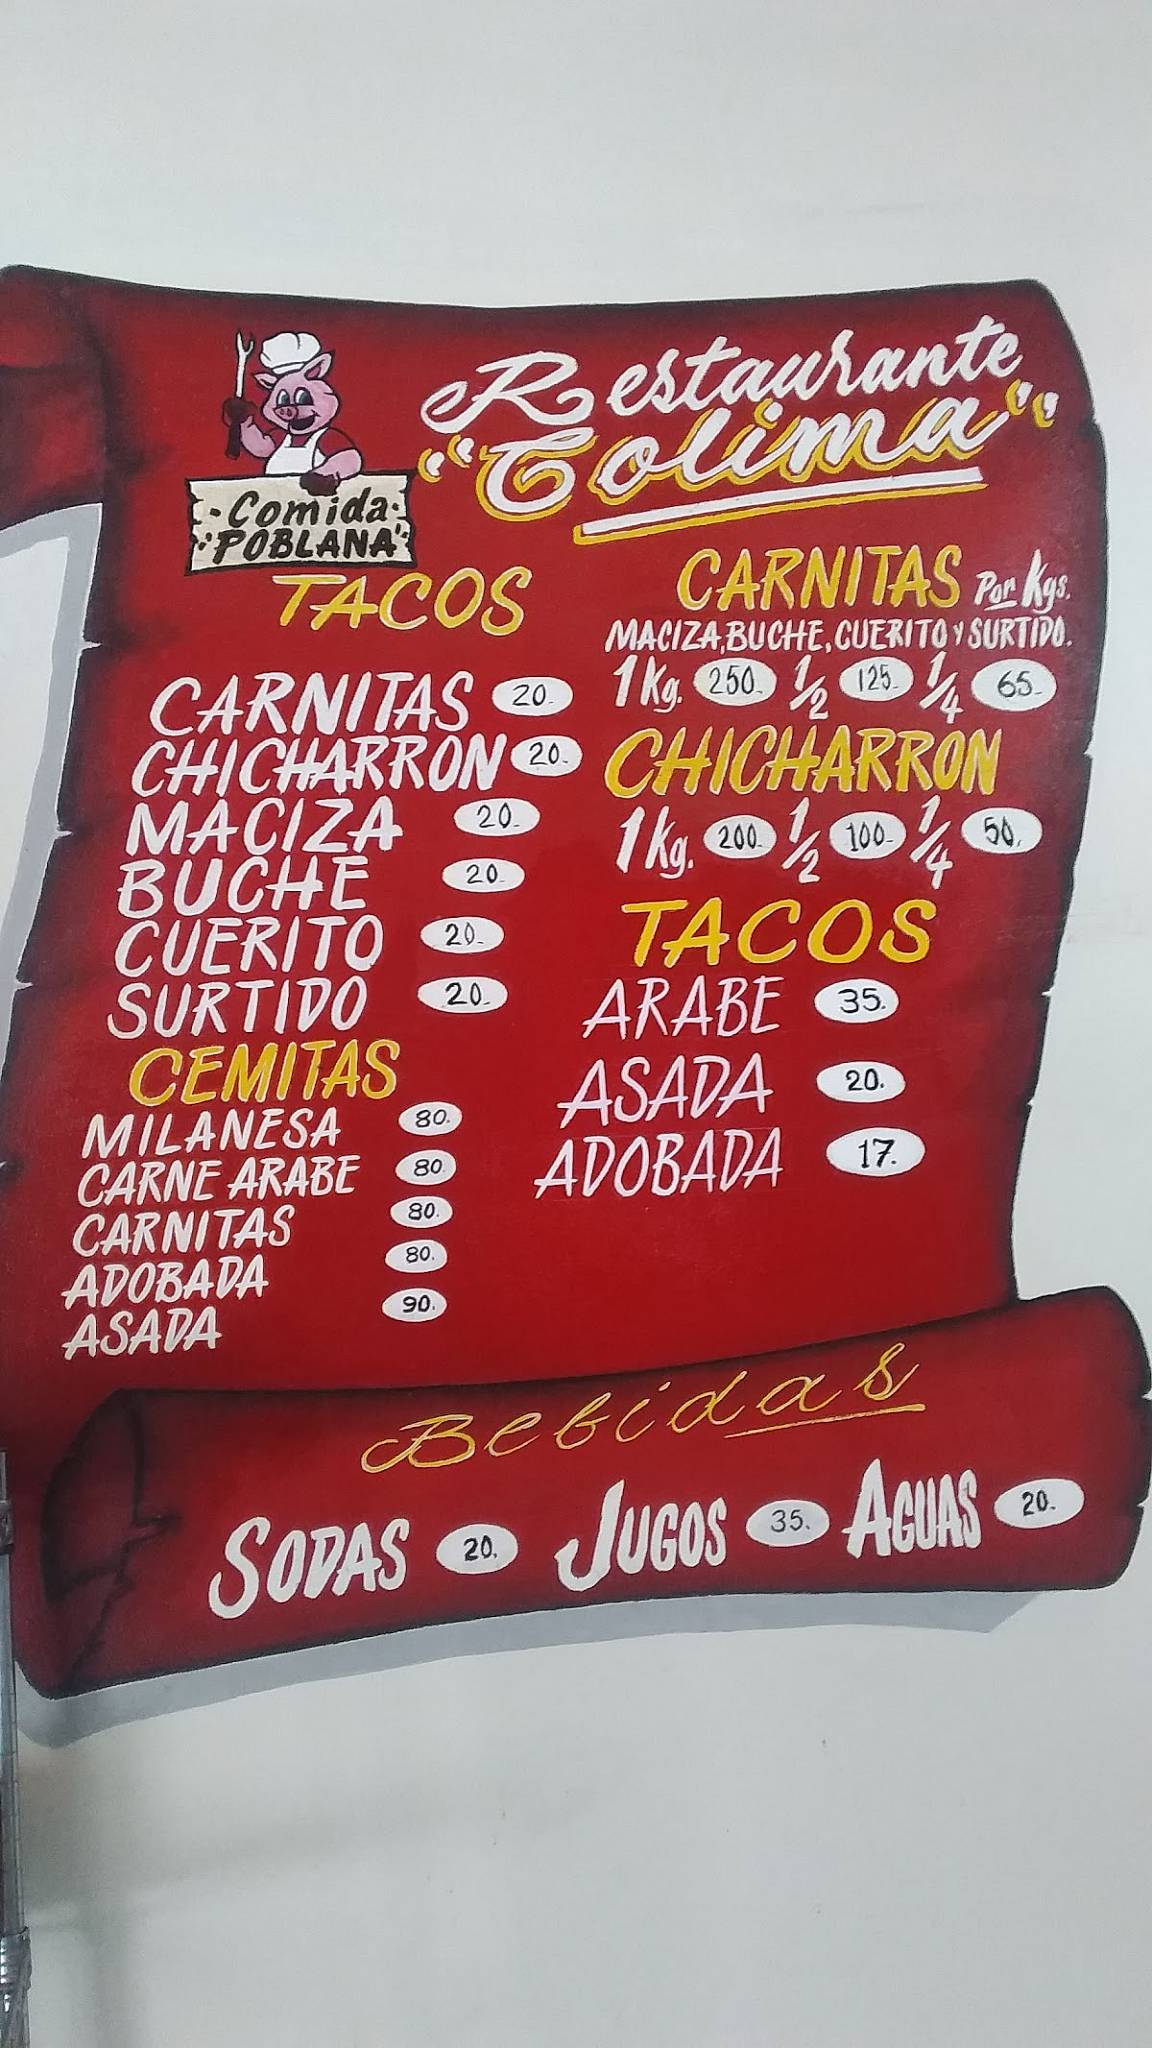 Restaurante
"Colima"
Comida
POBLANA
TACOS
CARNITAS 20.
CHICHARRON 20.
MACIZA 20.
BUCHE 20.
CUERITO 20.
SURTIDO 20.
CEMITAS
MILANESA 80.
CARNE ARABE 80.
CARNITAS 80.
ADOBADA 80.
ASADA 90.
CARNITAS Por Kgs.
MACIZA, BUCHE, CUERITO Y SURTIDO.
1 Kg. 250. 1/2 125. 1/4 65.
CHICHARRON
1 Kg. 200. 1/2 100. 1/4 50.
TACOS
ARABE 35.
ASADA 20.
ADOBADA 17.
Bebidas
SODAS 20. JUGOS 35. AGUAS 20.